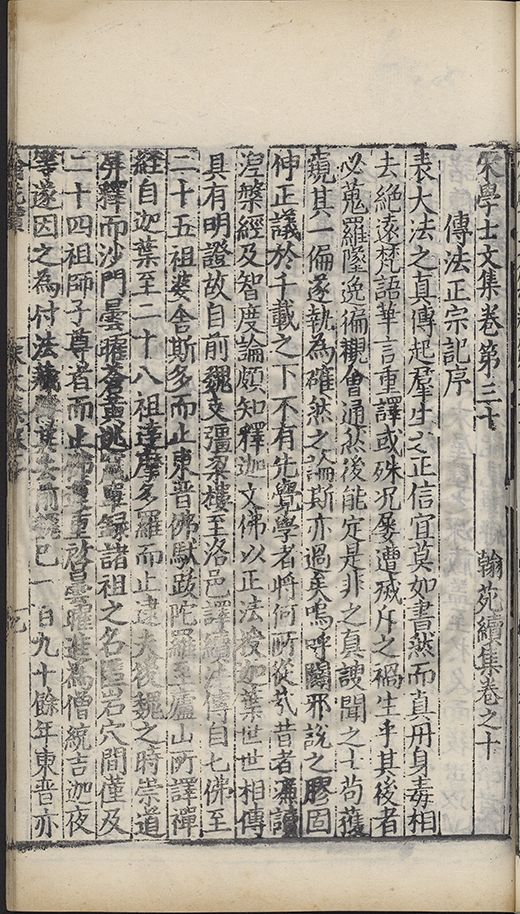 宋學士文集卷第三十 翰苑續集卷之十
傳法正宗記序
表大法之真傳起羣生之正信宜莫如書然而真丹身毒相
去絶遠梵語華言重譯或殊况屢遭滅斥之禍生乎其後者
必蒐羅墜逸徧觀會通然後能定是非之真謏聞之士苟獲
窺其一偏遂執為確然之論斯亦過矣嗚呼闢邪說之膠固
伸正議於千載之下不有先覺學者將何所從哉昔者濂讀
湼槃經及智度論頗知釋迦文佛以正法授迦葉世世相傳
具有明證故自前魏支彊梁樓至洛邑譯續法傳自七佛至
二十五祖婆舍斯多而止東晉佛馱跋陀羅至廬山所譯禪
經自迦葉至二十八祖達摩多羅而止逮夫後魏之時崇道
屏釋而沙門曇曜蒼黃逃竄單録諸祖之名匿岩穴間僅及
二十四祖師子尊者而止佛運重啓曇曜進為僧統吉迦夜
等遂因之為付法藏傳其去前魏已一百九十餘年東晉亦